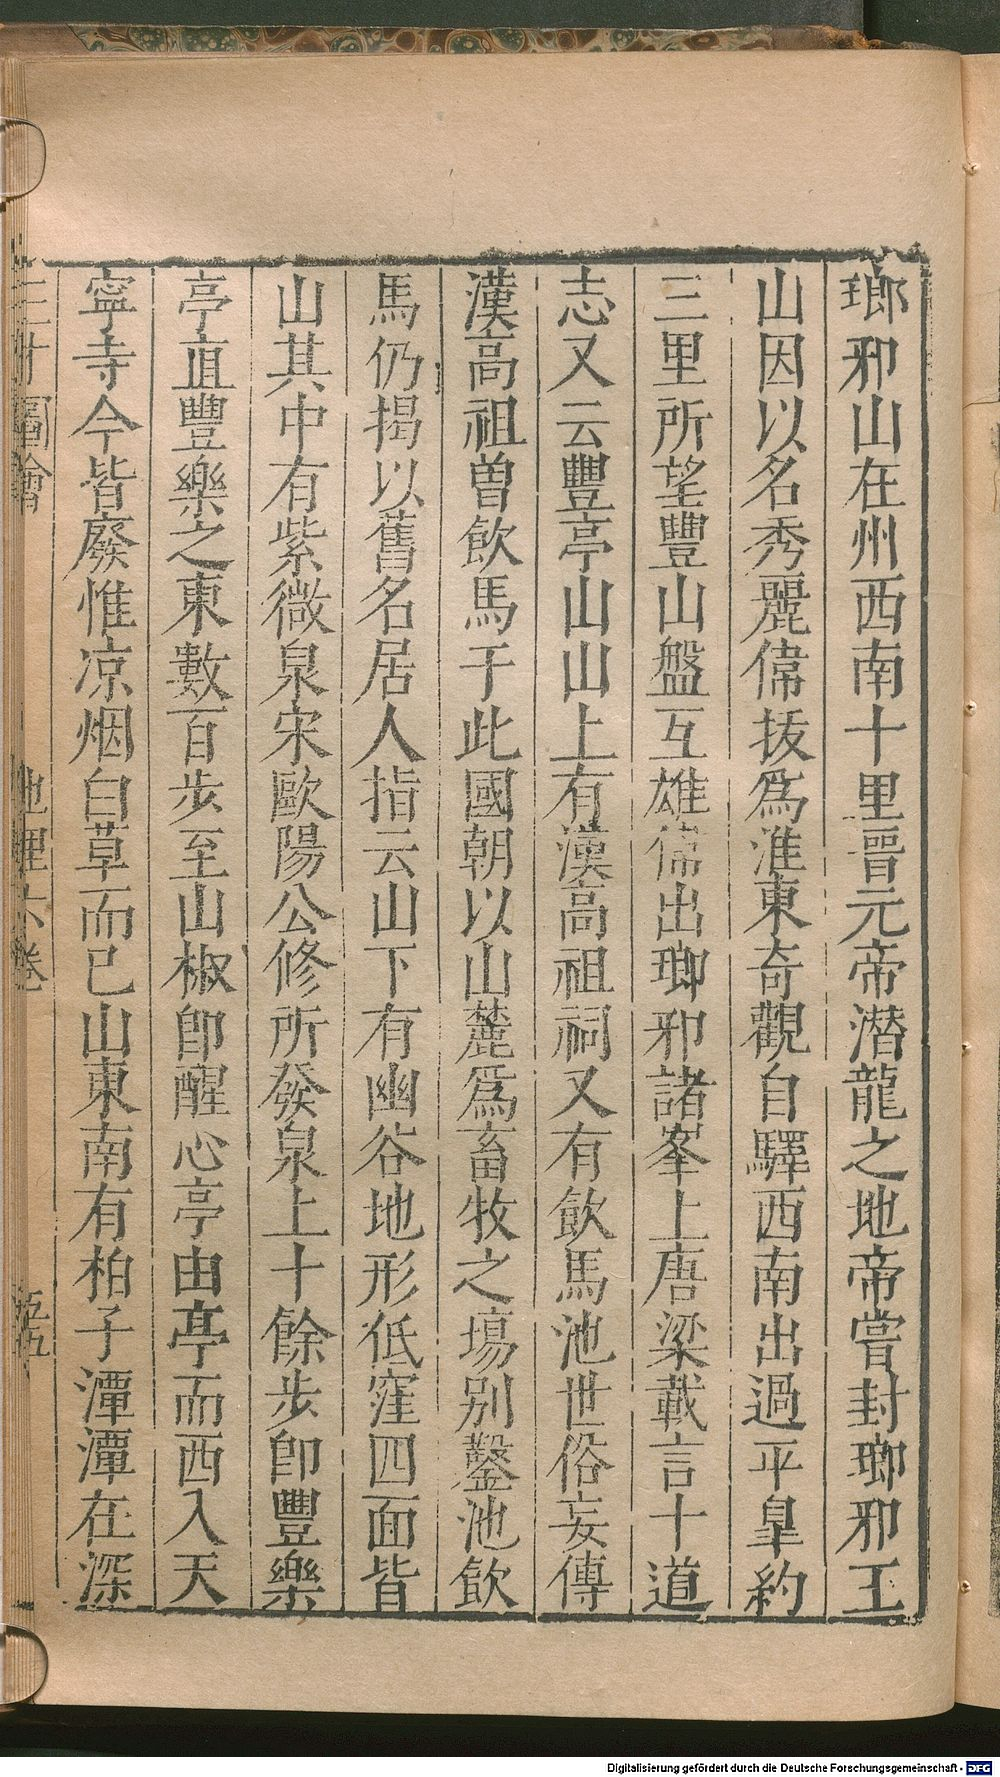 瑯邪山在州西南十里晉元帝潛龍之地帝嘗封瑯邪王
山因以名秀麗偉拔爲淮東奇觀自驛西南出過平皐約
三里所望豐山盤互雄偉出瑯邪諸峯上唐梁載言十道
志又云豐亭山山上有漢高祖祠又有飲馬池世俗妄傳
漢高祖曽飲馬于此國朝以山麓爲畜牧之塲别鑿池飲
馬仍揭以舊名居人指云山下有幽谷地形低窪四面皆
山其中有紫微泉宋歐陽公修所發泉上十餘步卽豐樂
亭直豐樂之東數百步至山椒卽醒心亭由亭而西入天
寧寺今皆廢惟凉烟白草而已山東南有柏子潭潭在深
三才圖會 地理六卷 五五
Digitalisierung gefördert durch die Deutsche Forschungsgemeinschaft - DFG